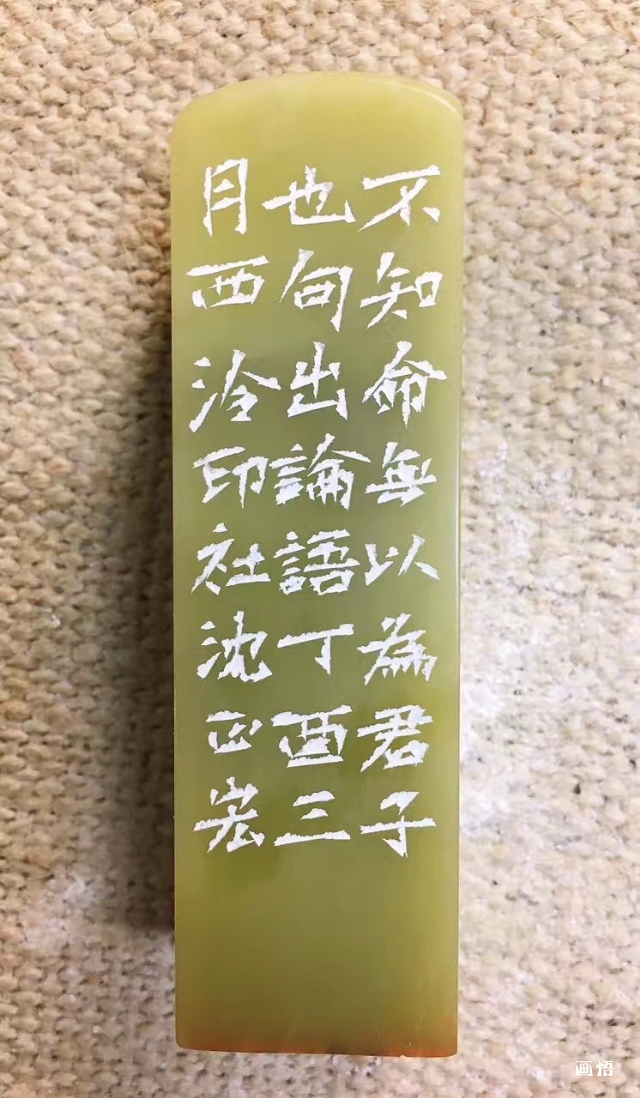 不知命無以為君子
也句出論語丁酉三
月西泠印社沈正宏
画悟